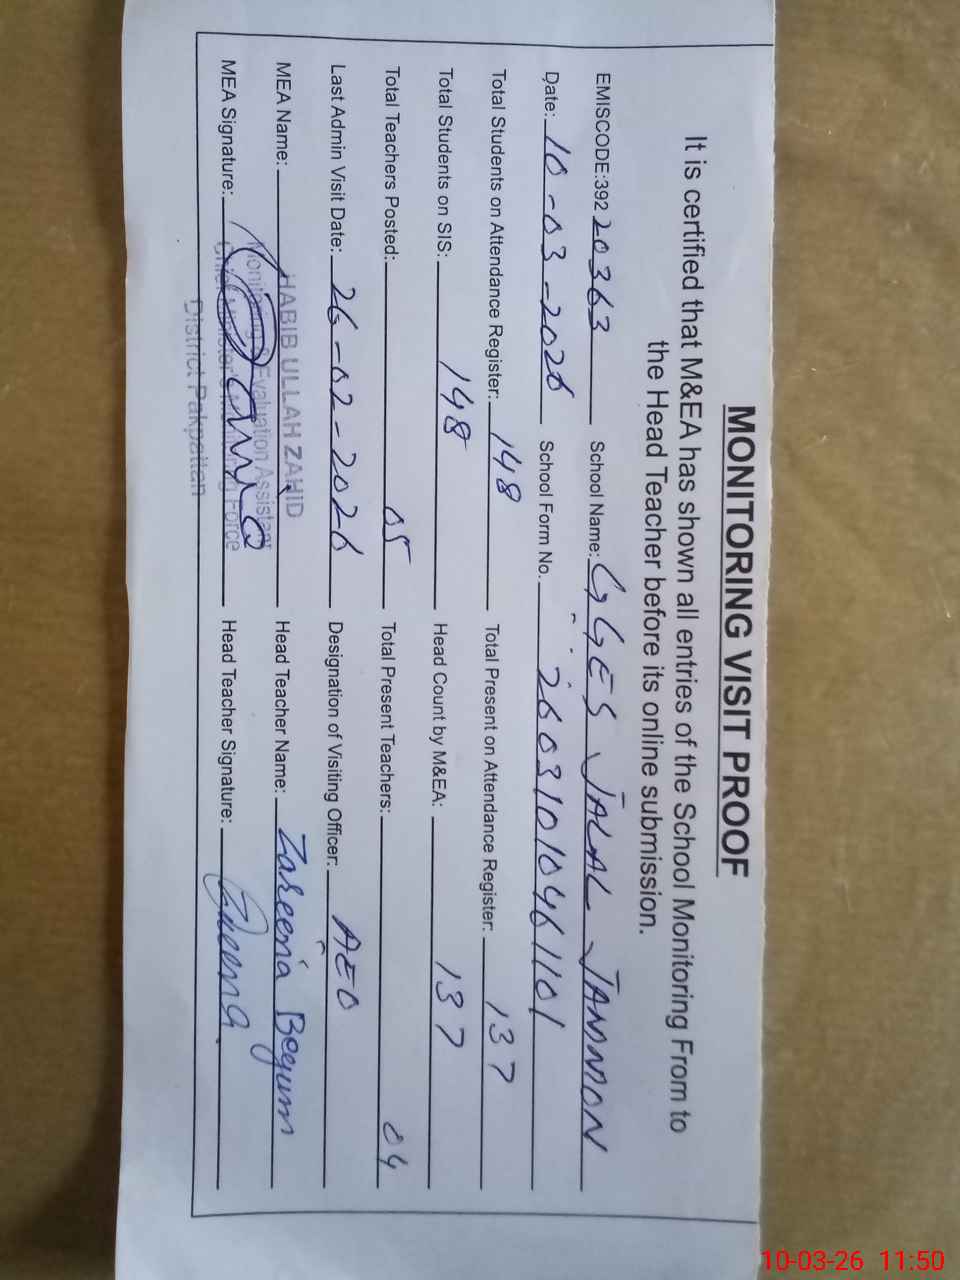 MONITORING VISIT PROOF
It is certified that M&EA has shown all entries of the School Monitoring From to
the Head Teacher before its online submission.
EMISCODE:392 20363 School Name: GGES JALAL JAMMON
Date: 10-03-2026 School Form No. 26031010461101
Total Students on Attendance Register: 148 Total Present on Attendance Register: 137
Total Students on SIS: 148 Head Count by M&EA: 137
Total Teachers Posted: 05 Total Present Teachers: 04
Last Admin Visit Date: 26-02-2026 Designation of Visiting Officer: AEO
MEA Name: HABIB ULLAH ZAHID Head Teacher Name: Zareena Begum
Monitoring & Evaluation Assistant
MEA Signature: Head Teacher Signature:
Chief Minister's Monitoring Force
District Pakpattan
10-03-26 11:50